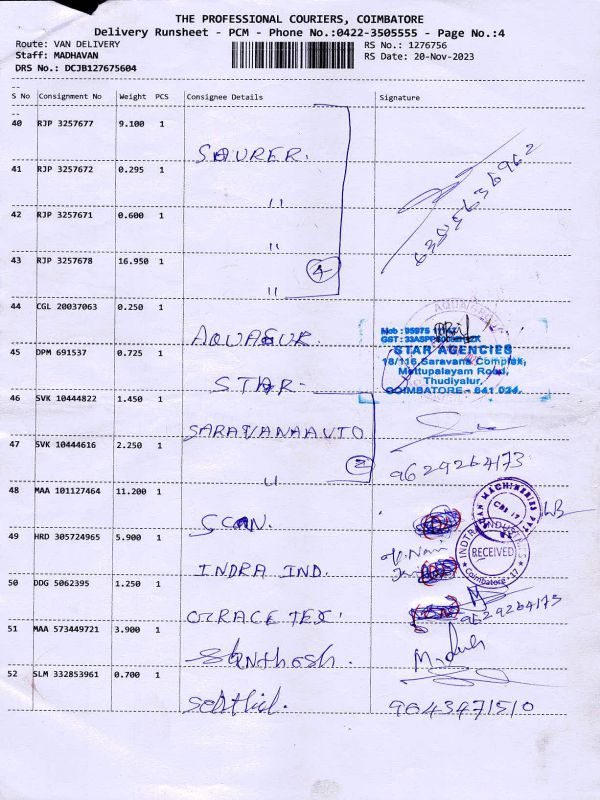 THE PROFESSIONAL COURIERS, COIMBATORE
Delivery Runsheet - PCM - Phone No.:0422-3505555 - Page No.:4
Route: VAN DELIVERY RS No.: 1276756
Staff: MADHAVAN RS Date: 20-Nov-2023
DRS No.: DCJB127675604
S No Consignment No Weight PCS Consignee Details Signature
40 RJP 3257677 9.100 1
SAURER.
41 RJP 3257672 0.295 1
"
42 RJP 3257671 0.600 1
"
43 RJP 3257678 16.950 1
4
"
6385636962
44 CGL 20037063 0.250 1
AQUASUR.
45 DPM 691537 0.725 1
STAR-
Mob : 95975
GST : 33ASPP
STAR AGENCIES
18/116, Saravana Complex,
Mettupalayam Road,
Thudiyalur,
COIMBATORE - 641 034.
46 SVK 10444822 1.450 1
SARAVANA AUTO
47 SVK 10444616 2.250 1
2
"
9629264173
48 MAA 101127464 11.200 1
SCAN.
49 HRD 305724965 5.900 1
INDRA IND.
RECEIVED
Coimbatore-17
50 DDG 5062395 1.250 1
GRACE TEX.
9629264173
51 MAA 573449721 3.900 1
Santhosh.
52 SLM 332853961 0.700 1
Senthil.
9643471510